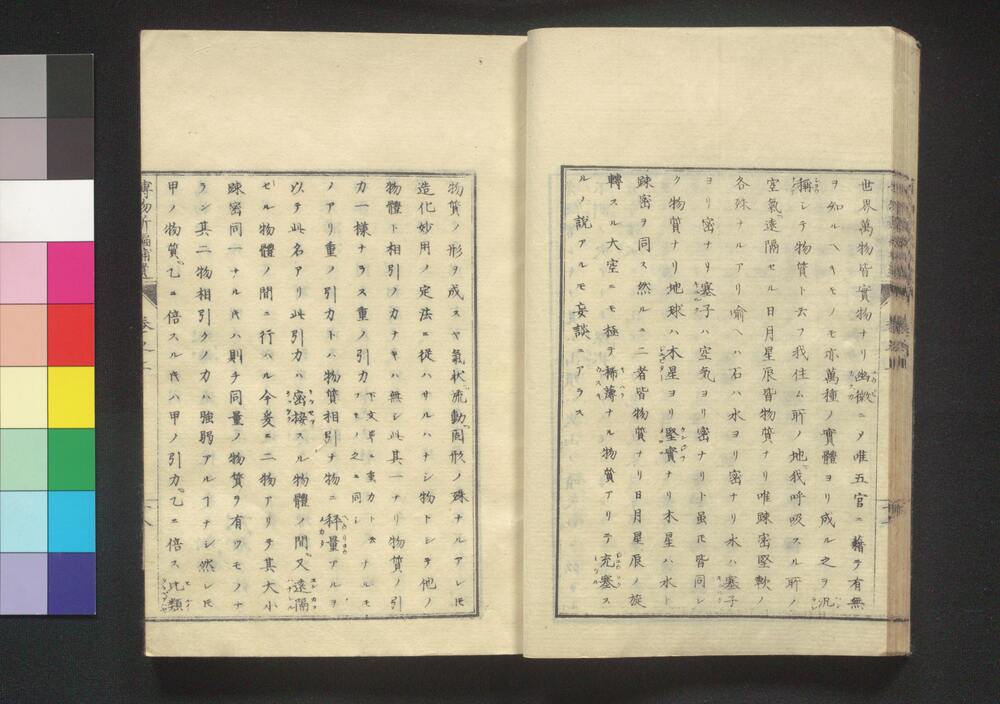 世界萬物皆實物ナリ幽微ニ〆唯五官ニ藉テ有無
ヲ知ルヘキモノモ亦萬種ノ實體ヨリ成ル之ヲ汎
稱シテ物質ト云フ我住ム所ノ地我呼吸スル所ノ
空氣遠隔セル日月星辰皆物質ナリ唯踈密堅軟ノ
各殊ナルアリ喻ヘハ石ハ水ヨリ密ナリ水ハ塞子
ヨリ密ナリ塞子ハ空気ヨリ密ナリト雖𪜈皆同シ
ク物質ナリ地球ハ木星ヨリ堅實ナリ木星ハ水ト
踈密ヲ同ス然ルニ二者皆物質ナリ日月星辰ノ旋
轉スル大空ニモ極テ稀薄ナル物質アリテ充塞ス
ルノ説アルモ妄談ニアラス
物質ノ形ヲ成スヤ氣狀流動固形ノ殊ナルアレ𪜈
造化妙用ノ定法ニ從ハサルハナシ物トシテ他ノ
物體ト相引ノ力ナキハ無シ此其一ナリ物質ノ引
力一樣ナラス重ノ引力下文單ニ重力ト云フモノ之ニ同シナルモ
ノアリ重ノ引力トハ物質相引テ物ニ秤量アルヲ
以テ此名アリ此引力ハ密接スル物體ノ間又遠隔
セル物體ノ間ニ行ハル今爰ニ二物アリテ其大小
踈密同一ナル𪜈ハ則チ同量ノ物質ヲ有ツモノナ
ラン其二物相引クノ力ハ強弱アルヿナシ然レ𪜈
甲ノ物質乙ニ倍スルキハ甲ノ引力乙ニ倍ス比類
博物新編補遺 卷之上